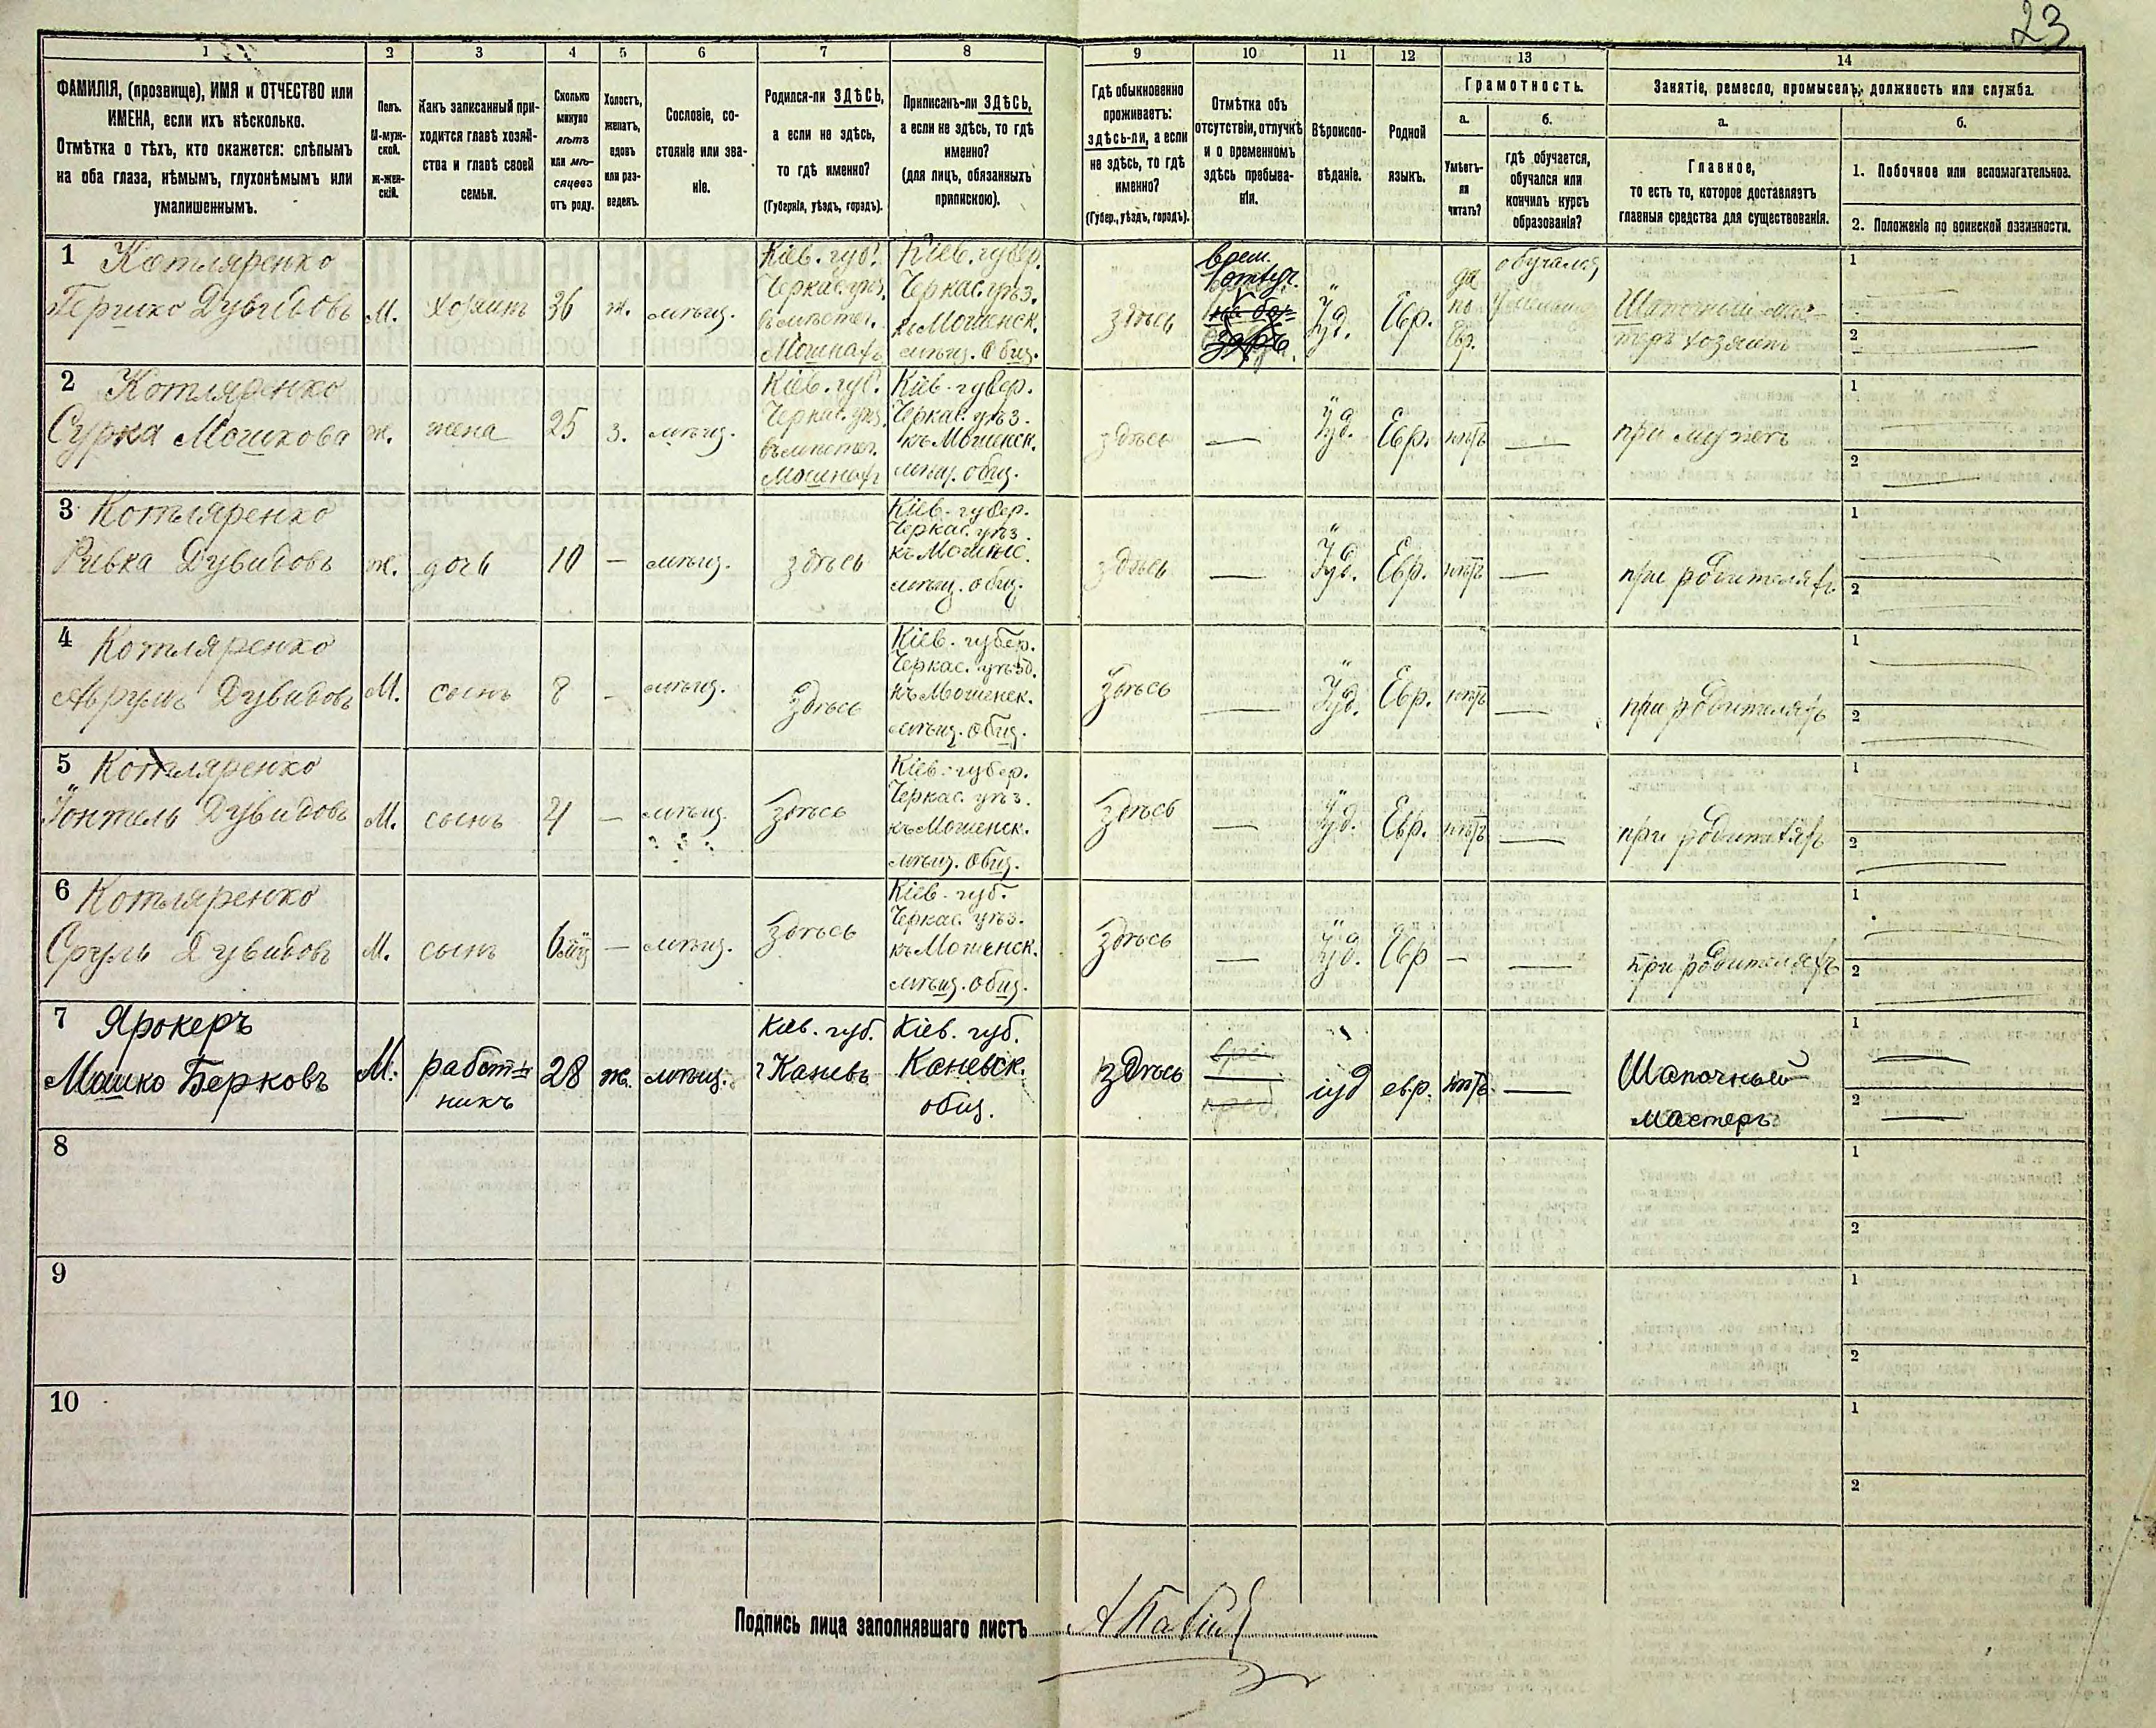 23
1
2
3
4
5
6
7
8
9
10
11
12
13
14
ФАМИЛІЯ, (прозвище), ИМЯ и ОТЧЕСТВО или
ИМЕНА, если ихъ нѣсколько.
Отмѣтка о тѣхъ, кто окажется: слѣпымъ
на оба глаза, нѣмымъ, глухонѣмымъ или
умалишеннымъ.
Полъ.
М-муж-
ской.
ж-жен-
скій.
Какъ записанный при-
ходится главѣ хозяй-
ства и главѣ своей
семьи.
Сколько
минуло
лѣтъ
или мѣ-
сяцевъ
отъ роду.
Холостъ,
женатъ,
вдовъ
или раз-
веденъ.
Сословіе, со-
стояніе или зва-
ніе.
Родился-ли ЗДѢСЬ,
а если не здѣсь,
то гдѣ именно?
(Губернія, уѣздъ, городъ).
Приписанъ-ли ЗДѢСЬ,
а если не здѣсь, то гдѣ
именно?
(для лицъ, обязанныхъ
припискою).
Гдѣ обыкновенно
проживаетъ:
здѣсь-ли, а если
не здѣсь, то гдѣ
именно?
(Губер., уѣздъ, городъ).
Отмѣтка объ
отсутствіи, отлучкѣ
и о временномъ
здѣсь пребыва-
ніи.
Вѣроиспо-
вѣданіе.
Родной
языкъ.
Грамотность.
а.
Умѣетъ-
ли
читать?
б.
гдѣ обучается,
обучался или
кончилъ курсъ
образованія?
Занятіе, ремесло, промыселъ, должность или служба.
а.
Главное,
то есть то, которое доставляетъ
главныя средства для существованія.
б.
1. Побочное или вспомогательное.
2. Положеніе по воинской повинности.
1 Котляренко
Гершко Дувидовъ
М.
хозяинъ
36
ж.
мѣщ.
Кіев. губ.
Черкас. уѣз.
въ мѣстеч.
Мошнахъ
Кіев. губер.
Черкас. уѣз.
къ Мошенск.
мѣщ. Общ.
здѣсь
врем.
отлуч.
Іуд.
Евр.
да
по
Евр.
обучался
Шапочный мас-
теръ хозяинъ
1
2
2 Котляренко
Сурка Мошкова
ж.
жена
25
з.
мѣщ.
Кіев. губ.
Черкас. уѣз.
въ мѣстеч.
Мошнахъ
Кіев. губер.
Черкас. уѣз.
къ Мошенск.
мѣщ. общ.
здѣсь
—
Іуд.
Евр.
нѣтъ
—
при мужѣ
1
2
3 Котляренко
Ривка Дувидовъ
ж.
дочь
10
—
мѣщ.
здѣсь
Кіев. губер.
Черкас. уѣз.
къ Мошенс.
мѣщ. общ.
здѣсь
—
Іуд.
Евр.
нѣтъ
—
при родителяхъ
1
2
4 Котляренко
Аврумъ Дувидовъ
М.
сынъ
8
-
мѣщ.
здѣсь
Кіев. губер.
Черкас. уѣзд.
къ Мошенск.
мѣщ. Общ.
здѣсь
—
Іуд.
Евр.
нѣтъ
—
при родителяхъ
1
2
5 Котляренко
Іонтель Дувидовъ
М.
сынъ
4
—
мѣщ.
здѣсь
Кіев. губер.
Черкас. уѣз.
къ Мошенск.
мѣщ. Общ.
здѣсь
—
Іуд.
Евр.
нѣтъ
—
при родителяхъ
1
2
6 Котляренко
Сруль Дувидовъ
М.
сынъ
—
мѣщ.
здѣсь
Кіев. губ.
Черкас. уѣз.
къ Мошенск.
мѣщ. Общ.
здѣсь
—
Іуд.
Евр
—
—
при родителяхъ
1
2
7 Ярокеръ
Мошко Берковъ
М.
работ-
никъ
28
ж.
мѣщ.
Кіев. губ.
г Каневъ
Кіев. губ.
Каневск.
общ.
здѣсь
—
іуд
евр.
нѣтъ
—
Шапочный
мастеръ
1
2
8
1
2
9
1
2
10
1
2
Подпись лица заполнявшаго листъ